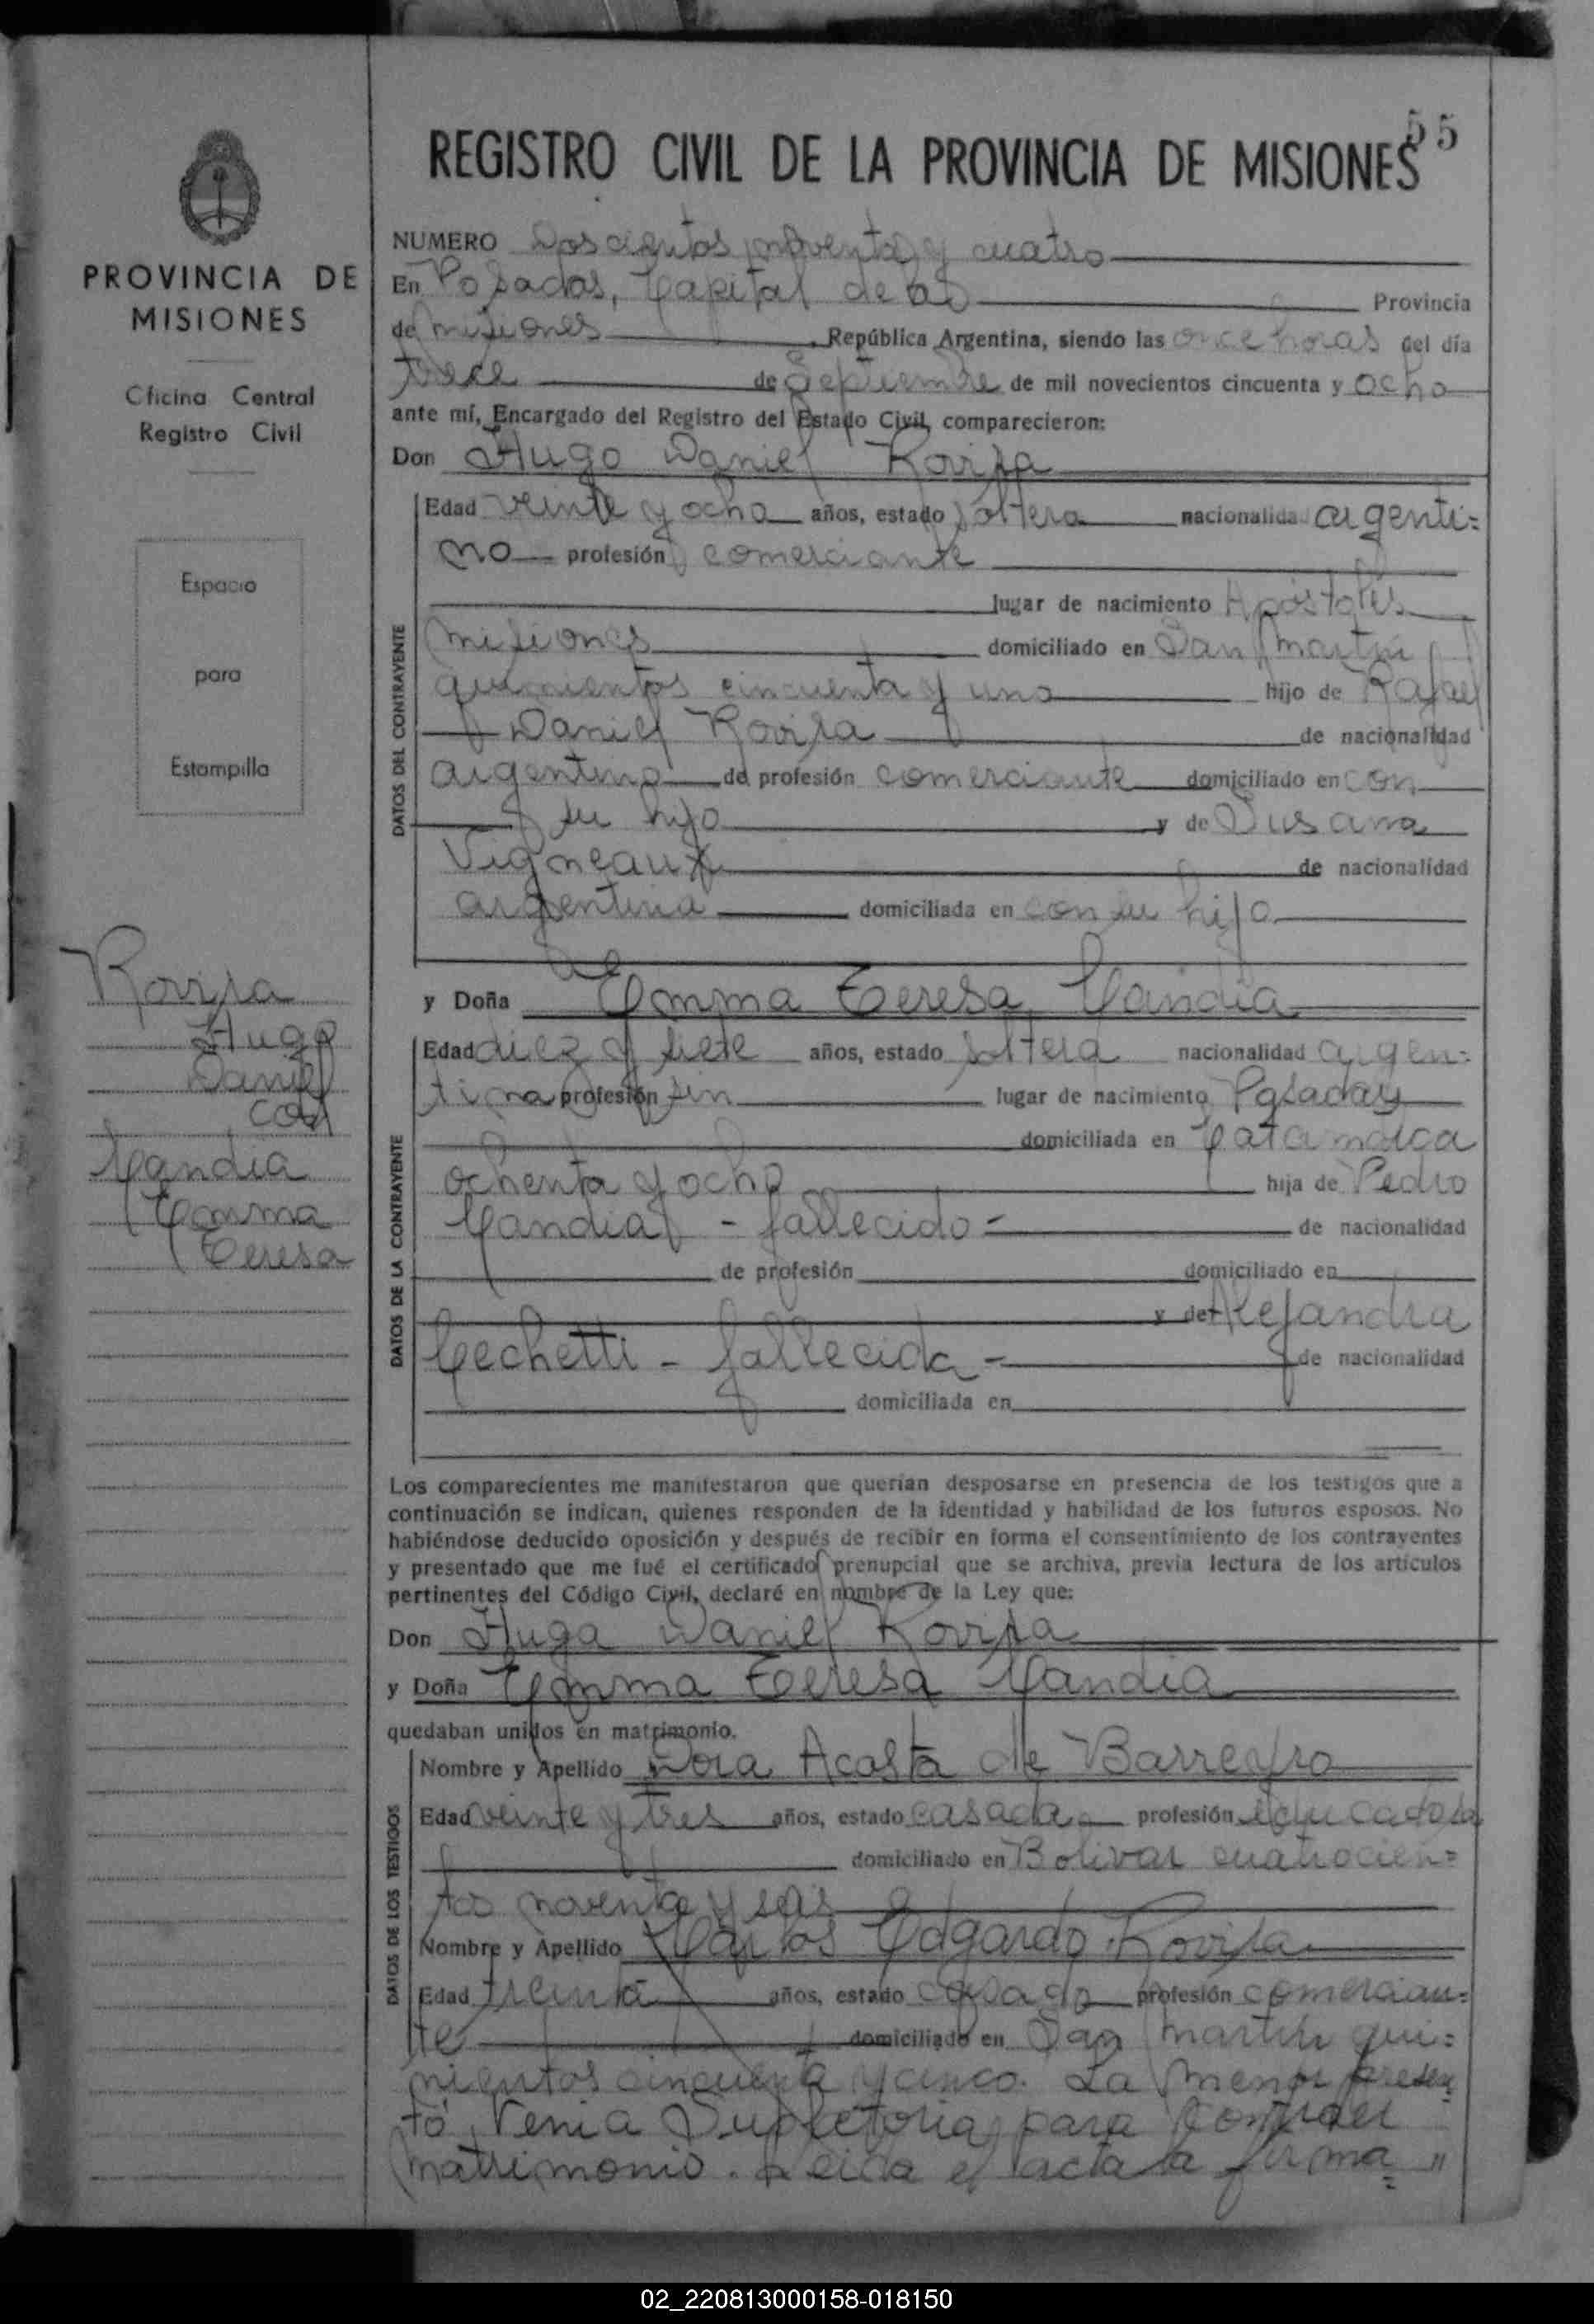 55
REGISTRO CIVIL DE LA PROVINCIA DE MISIONES
PROVINCIA DE
MISIONES
Oficina Central
Registro Civil
Espacio
para
Estampilla
Rovira
Hugo
Daniel
con
Candia
Emma
Teresa
NUMERO Doscientos noventa y cuatro
En Posadas, Capital de la Provincia
de Misiones, República Argentina, siendo las once horas del día
trece de Septiembre de mil novecientos cincuenta y ocho
ante mí, Encargado del Registro del Estado Civil, comparecieron:
Don Hugo Daniel Rovira
DATOS DEL CONTRAYENTE
Edad veinte y ocho años, estado soltero nacionalidad argenti=
no profesión comerciante
lugar de nacimiento Apóstoles
Misiones domiciliado en San Martín
quinientos cincuenta y uno hijo de Rafael
Daniel Rovira de nacionalidad
argentino de profesión comerciante domiciliado en con
su hijo y de Susana
Vigneaux de nacionalidad
argentina domiciliada en con su hijo
y Doña Emma Teresa Candia
DATOS DE LA CONTRAYENTE
Edad diez y siete años, estado soltera nacionalidad argen=
tina profesión sin lugar de nacimiento Posadas
domiciliada en Catamarca
ochenta y ocho hija de Pedro
Candia - fallecido = de nacionalidad
de profesión domiciliado en
y de Alejandra
Cechetti - fallecida - de nacionalidad
domiciliada en
Los comparecientes me manifestaron que querían desposarse en presencia de los testigos que a
continuación se indican, quienes responden de la identidad y habilidad de los futuros esposos. No
habiéndose deducido oposición y después de recibir en forma el consentimiento de los contrayentes
y presentado que me fué el certificado prenupcial que se archiva, previa lectura de los artículos
pertinentes del Código Civil, declaré en nombre de la Ley que:
Don Hugo Daniel Rovira
y Doña Emma Teresa Candia
quedaban unidos en matrimonio.
DATOS DE LOS TESTIGOS
Nombre y Apellido Dora Acosta de Barreyro
Edad veinte y tres años, estado casada profesión educadora
domiciliado en Bolívar cuatrocien=
tos noventa y seis
Nombre y Apellido Carlos Edgardo Rovira
Edad treinta años, estado casado profesión comercian=
te domiciliado en San Martín qui=
nientos cincuenta y cinco. La menor presen=
tó Venia Supletoria para contraer
matrimonio. Leida el acta la firma="
02_220813000158-018150